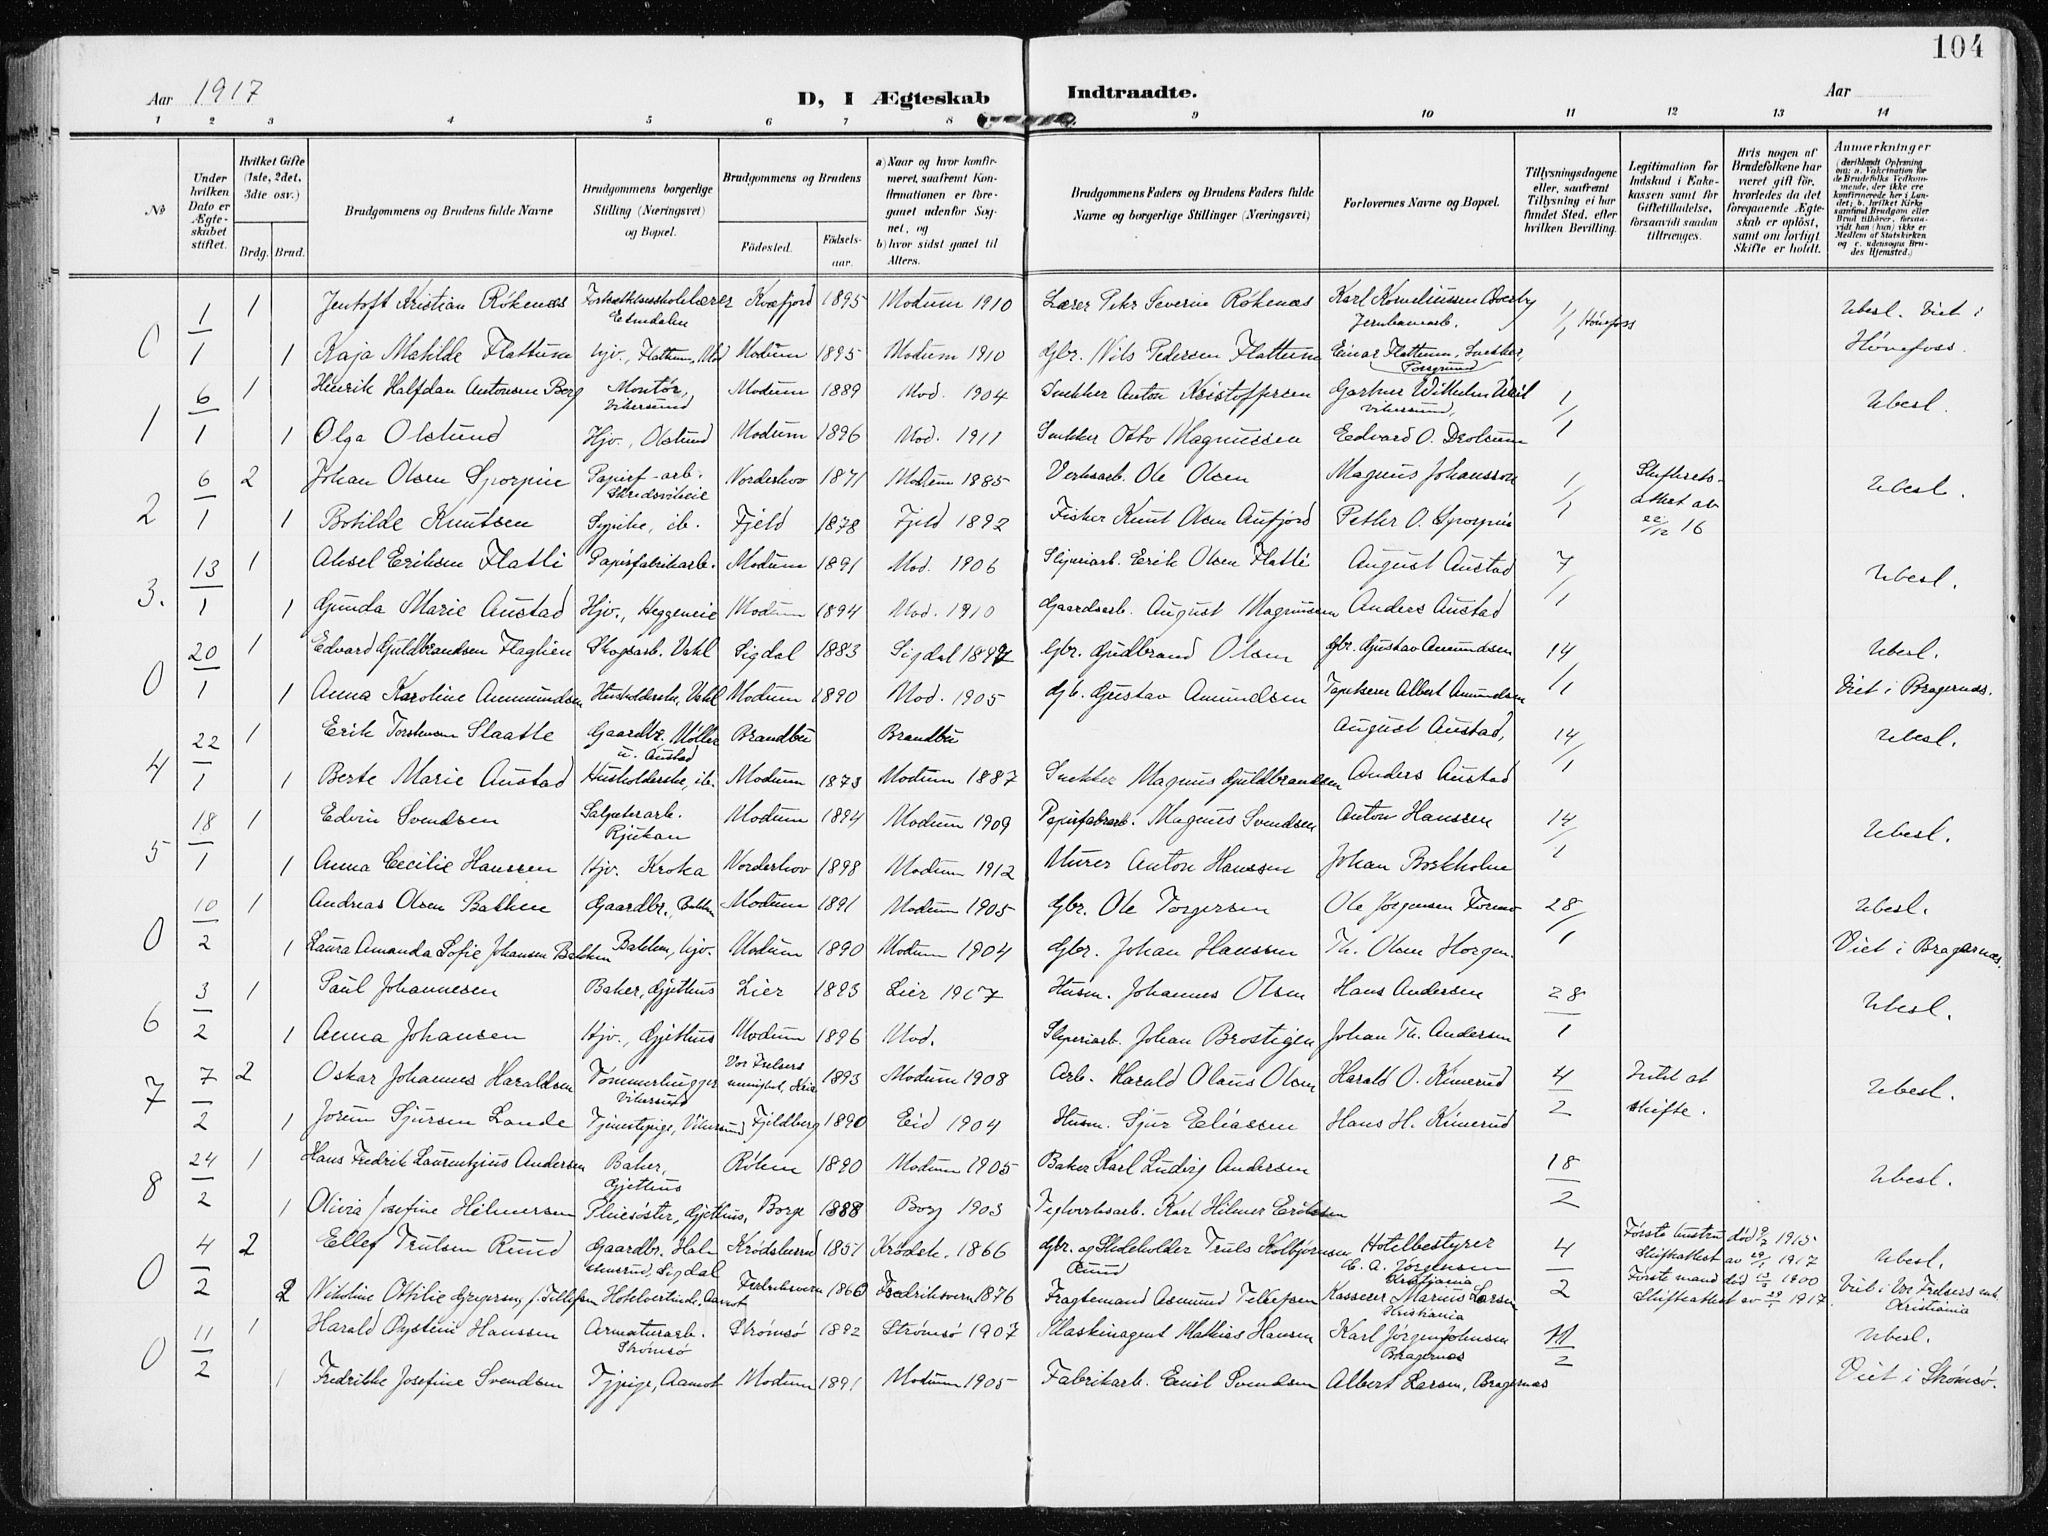 104
Aar 1917
D, I Ægteskab Indtraadte.
Aar
1 2 3 4 5 6 7 8 9 10 11 12 13 14
No
Under hvilken Dato er Ægteskabet stiftet.
Hvilket Gifte (1ste, 2det, 3die osv.)
Brdg. Brud.
Brudgommens og Brudens fulde Navne
Brudgommens borgerlige Stilling (Næringsvei) og Bopæl.
Brudgommens og Brudens
Fødested. Fødselsaar.
a) Naar og hvor konfirmeret, saafremt Konfirmationen er foregaaet udenfor Sognet, og
b) hvor sidst gaaet til Alters.
Brudgommens Faders og Brudens Faders fulde Navne og borgerlige Stillinger (Næringsvei)
Forlovernes Navne og Bopæl.
Tillysningsdagene eller, saafremt Tillysning ei har fundet Sted, efter hvilken Bevilling.
Legitimation for Indskud i Enkekassen samt for Giftetilladelse, forsaavidt saadan tiltrænges.
Hvis nogen af Brudefolkene har været gift før, hvorledes da det foregaaende Ægteskab er opløst, samt om lovligt Skifte er holdt.
Anmærkninger
(deriblandt Oplysning om: a. Vakcination for de Brudefolks Vedkommende, der ikke ere konfirmerede her i Landet; b. hvilket Kirkesamfund Brudgom eller Brud tilhører, forsaavidt han (hun) ikke er Medlem af Statskirken og c. udensogns Brudes Hjemsted.)
0 1/1 1 Jentoft Kristian Røkenæs Kvæfjord 1895 Modum 1910 Lærer Petr Severin Røkenæs Karl Korneliussen Overby Jernbanearb. 1/1 Hønefoss Ubesl. Viet i
1 Kaja Matilde Flattum Hjv., Flattum, Mod Modum 1895 Modum 1910 Gbr. Nils Pedersen Flattum Einar Flattum, Snekker, Porsgrund Hønefoss.
1 6/1 1 Henrik Halfdan Antonsen Berg Montør, Vikersund Modum 1889 Mod. 1904 Snekker Anton Kristoffersen Gartner Wilhelm Vikersund, 1/1 Ubesl.
1 Olga Olstund Hjv., Olstund Modum 1896 Mod. 1911 Snekker Otto Magnussen Edvard O. Drolsum
2 6/1 2 Johan Olsen Sporpin Papirf-arb. Norderhov 1871 Modum 1885 Verksarb. Ole Olsen Magnus Johansson 1/1 Skifterets- Ubesl.
1 Botilde Knutsen Sypike, ib. Fjeld 1878 Fjeld 1892 Fisker Knut Olsen Aufjord Petter O. Sporpin attest av 22/12 16
3. 13/1 1 Aksel Eriksen Flatli Papirfabrikarb. Modum 1891 Mod. 1906 Sliperiarb. Erik Olsen Flatli August Austad 7/1 Ubesl.
1 Gunda Marie Austad Hjv., Heggeneie Modum 1894 Mod. 1910 Gaardsarb. August Magnussen Anders Austad
0 20/1 1 Edvard Guldbrandsen Flaglien Skogsarb. Vahl Sigdal 1883 Sigdal 1897 Gbr. Gudbrand Olsen Gbr. Gustav Amundsen 14/1 Ubesl.
1 Anna Karoline Ammundsen Husholderske, Vahl Modum 1890 Mod. 1905 Gb. Gustav Amundsen Tapetserer Albert Amundsen Viet i Bragernæs.
4 22/1 1 Erik Torstensen Slaatte Gaardbr. Møller u. Austad Brandbu Brandbu August Austad, 14/1 Ubesl.
1 Berte Marie Austad Husholderske, ib. Modum 1873 Modum 1887 Snekker Magnus Guldbrandsen Anders Austad
5 18/1 1 Edvin Svendsen Salpeterarb. Rjukan Modum 1894 Modum 1909 Papirfabrarb. Magnus Svendsen Anton Hanssen 14/1 Ubesl.
1 Anna Cecilie Hanssen Hjv. Kroka Norderhov 1898 Modum 1912 Murer Anton Hanssen Johan Borkholm
0 10/2 1 Andreas Olsen Bakken Gaardbr., Bakken Modum 1891 Modum 1905 Gbr. Ole Torgersen Ole Jørgensen Formo 28/1 Ubesl.
1 Laura Amanda Sofie Johansen Bakken Bakken, Hjv. Modum 1890 Modum 1904 Gbr. Johan Hanssen Th. Olsen Horgen Viet i Bragernæs.
6 3/2 1 Paul Johannesen Baker, Gjethus Lier 1893 Lier 1907 Husm. Johannes Olsen Hans Andersen 28/1 Ubesl.
1 Anna Johansen Hjv., Gjethus Modum 1896 Mod. Sliperiarb. Johan Brostigen Johan Th. Andersen
7 7/2 2 Oskar Johannes Haraldsen Tømmerhugger Vikersund Vor Frelsers menighet, Kria 1893 Modum 1908 Arb. Harald Olaus Olsen Harald O. Kimerud 4/2 Intet at Ubesl.
1 Jorun Sjursen Lande Tjenestepige, Vikersund Fjeldberg 1890 Eid 1904 Husm. Sjur Eliassen Hans H. Kimerud skifte.
8 24/2 1 Hans Fredrik Laurentzius Andersen Baker, Gjethus Røken 1890 Modum 1905 Baker Karl Ludvig Andersen 18/2 Ubesl.
1 Olivia Josefine Hilmersen Pleiesøster, Gjethus, Borge 1888 Borg 1903 Teglverksarb. Karl Hilmer Eriksen
0 4/2 2 Ellef Trulsen Ruud Gaardbr. Sigdal Krødsherrad 1851 Krødsh. 1866 Gbr. og Skoleholder Truls Kolbjørnsen Ruud Hotelbestyrer C. A. Jørgensen Kristiania 4/2 Første hustru død 9/7 1915 Skifteattest av 29/1 1917 Ubesl.
2 Nikoline Ottilie Gregersen f. Tellefsen Hotelvertinde, Aamot Fredriksvern 1860 Fredriksvern 1876 Fragtemand Asmund Tellefsen Kasserer Marius Larsen Kristiania Første mand død 1900 Skifteattest av 29/1 1917 Viet i Vor Frelsers, Kristiania
0 11/2 1 Harald Øystein Hanssen Armaturarb. Strømsø Strømsø 1892 Strømsø 1907 Maskinagent Mathias Hansen Karl Jørgen Johnsen Bragernæs 11/2 Ubesl.
1 Fredrikke Josefine Svendsen Tjpige, Aamot Modum 1891 Modum 1905 Fabrikarb. Emil Svendsen Albert Larsen, Bragernæs Viet i Strømsø.